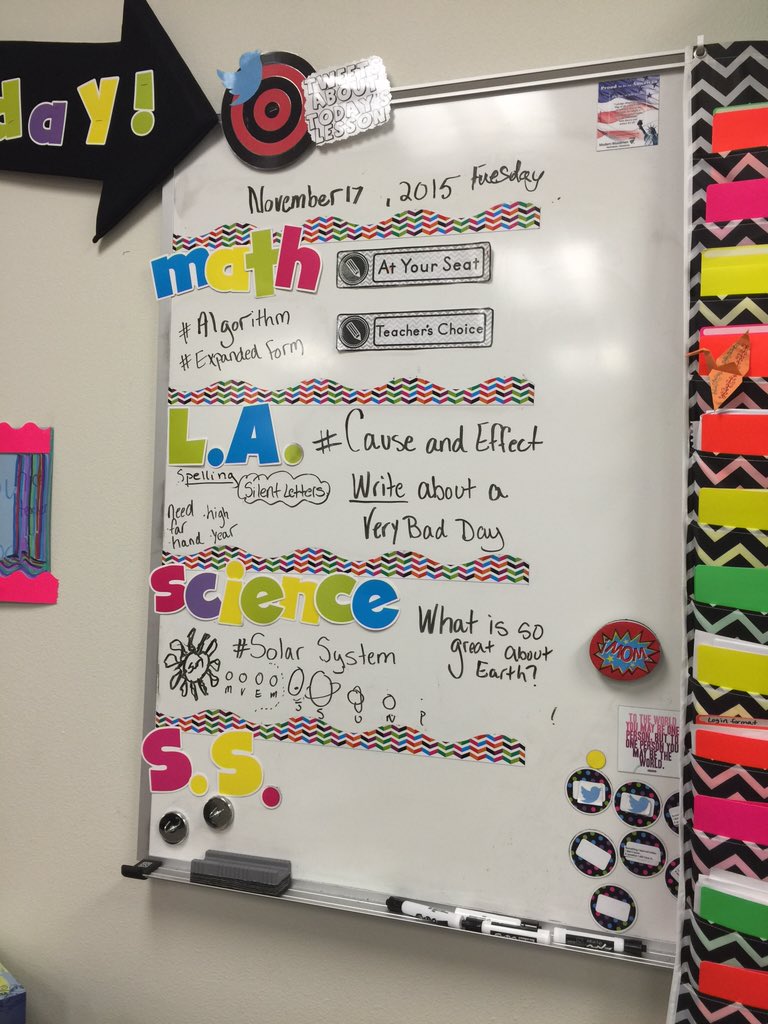 day!
TWEET
ABOUT
TODAY'S
LESSON
November 17, 2015 Tuesday
math
At Your Seat
# Algorithm
Teacher's Choice
# Expanded Form
L.A.
# Cause and Effect
Spelling
Silent Letters
Write about a
Very Bad Day
Need high
far
hand year
science
What is so
great about
Earth?
Sun
#Solar System
M V E M J S U N P
MOM
TO THE WORLD
YOU MAY BE ONE
PERSON, BUT TO
ONE PERSON YOU
MAY BE THE
WORLD.
Login format
S.S.